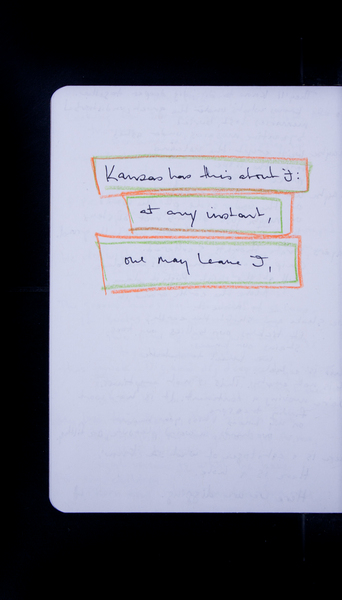 Kansas has this about it:
at any instant,
one may leave it,